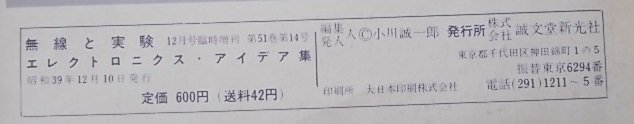 無線と実験 12月号臨時増刊 第51巻第14号
エレクトロニクス・アイデア集
昭和39年12月10日発行
定価 600円(送料42円)
編集発行人 ©小川誠一郎 発行所 株式会社 誠文堂新光社
東京都千代田区神田錦町1の5
振替東京6294番
印刷所 大日本印刷株式会社 電話(291)1211〜5番